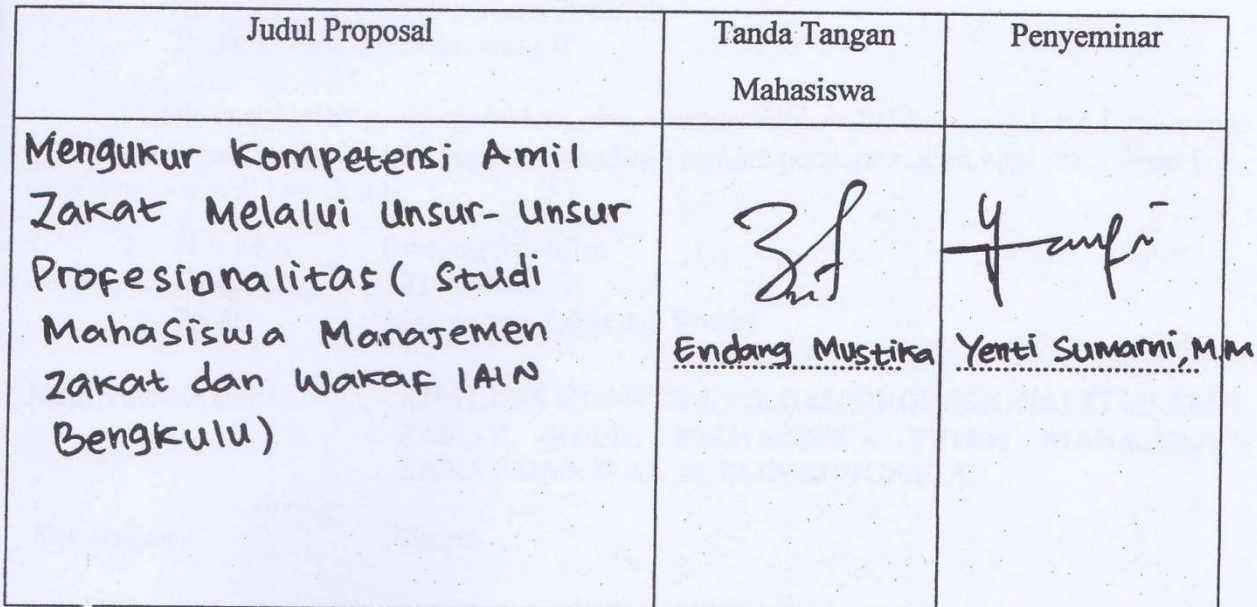 Judul Proposal
Tanda Tangan
Mahasiswa
Penyeminar
Mengukur Kompetensi Amil
Zakat Melalui Unsur-Unsur
Profesionalitas (Studi
Mahasiswa Manajemen
Zakat dan Wakaf IAIN
Bengkulu)
Endang Mustika
Yenti Sumarni, M.M